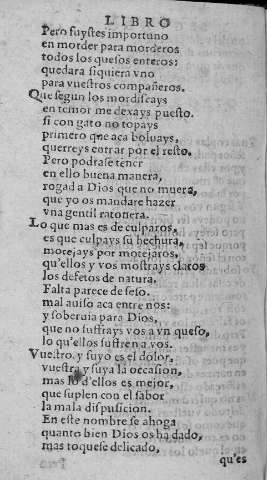 LIBRO
Pero fuystes importuno
en morder para morderos
todos los quesos enteros:
quedara siquiera vno
para vuestros compañeros.
Que segun los mordiscays
en temor me dexays puesto.
si con gato no topays
primero que aca boluays,
querreys entrar por el resto.
Pero podrase tener
en ello buena manera,
rogad a Dios que no muera,
que yo os mandare hazer
vna gentil ratonera.
Lo que mas es de culparos,
es que culpays su hechura,
motejays por motejaros,
qu'ellos y vos mostrays claros
los defetos de natura.
Falta parece de seso.
mal auiso aca entre nos:
y soberuia para Dios,
que no sufrays vos a vn queso,
lo qu'ellos sufren a vos.
Vuestro, y suyo es el dolor,
vuestra y suya la occasion,
mas lo d'ellos es mejor,
que suplen con el sabor
la mala dispusicion.
En este nombre se ahoga
quanto bien Dios os ha dado,
mas toquese delicado,
qu'es